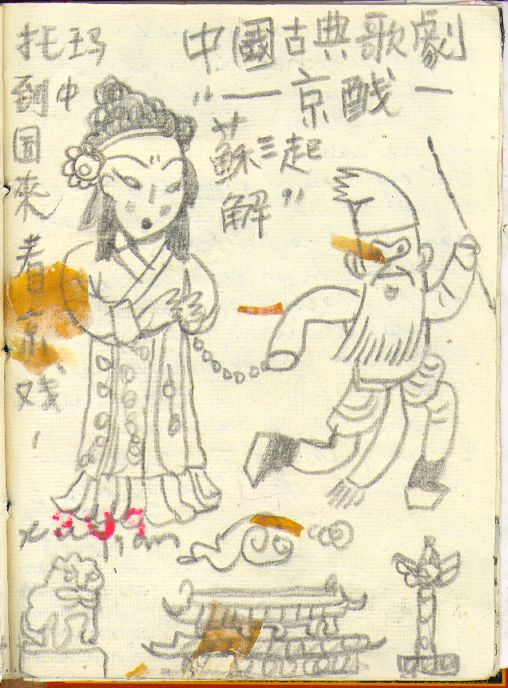 中國古典歌劇
“—京戲—
蘇三起
解”
托玛
到中
国
來
看
京
戏